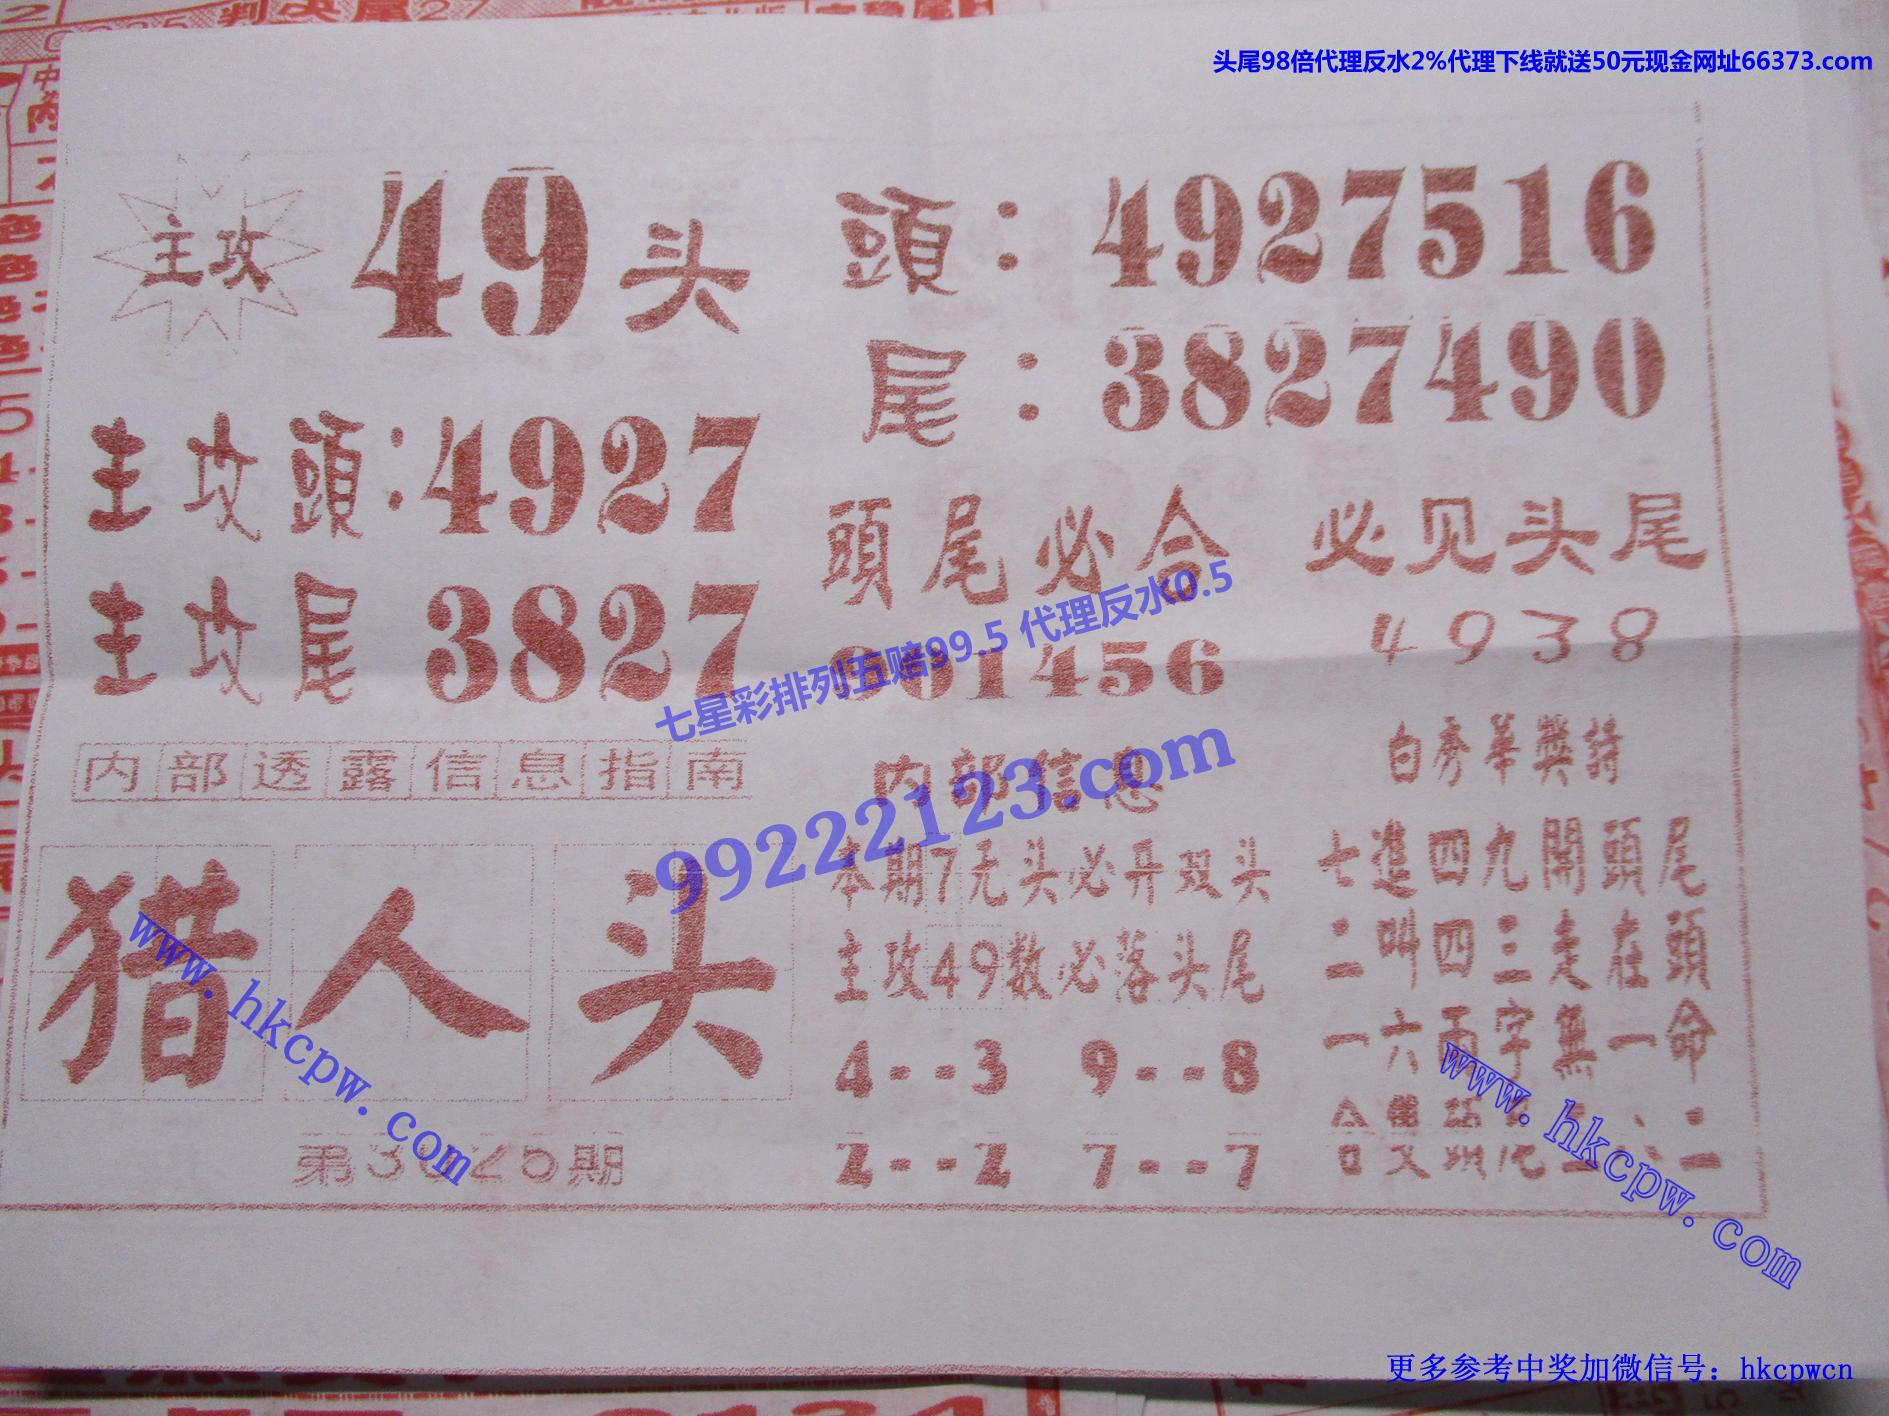 头尾98倍代理反水2%代理下线就送50元现金网址66373.com
主攻 49头
頭：4927516
尾：3827490
主攻頭：4927
主攻尾 3827
頭尾必合
01456
必见头尾
4938
七星彩排列五赔99.5 代理反水0.5
99222123.com
内部透露信息指南
猎人头
内部信息
本期7无头必开双头
主攻49数必落头尾
4--3 9--8
2--2 7--7
白秀华奖詩
七進四九開頭尾
二叫四三走在頭
一六两字無一命
第 25期
www.hkcpw.com
www.hkcpw.com
更多参考中奖加微信号：hkcpwcn